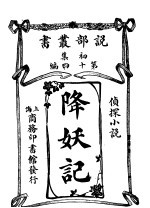 說部叢書
初集
第十四編
偵探小說
降妖記
上海
商務印書館發行